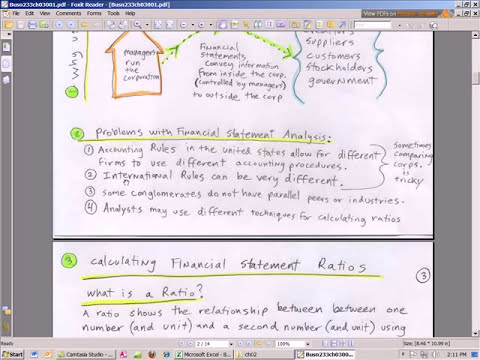 Busn233ch03001.pdf - Foxit Reader
File Edit View Comments Forms Tools Help
View PDFs on
managers
run
the
corporation
Financial
Statements
convey information
from inside the corp.
(controlled by managers)
to outside the corp
Suppliers
Customers
Stockholders
government
② Problems with Financial Statement Analysis:
① Accounting Rules in the united states allow for different
firms to use different accounting procedures.
② International Rules can be very different.
③ some conglomerates do not have parallel peers or industries.
④ Analysts may use different techniques for calculating ratios
sometimes
comparing
corps.
is
tricky
③ calculating Financial Statement Ratios
③
what is a Ratio?
A ratio shows the relationship between between one
number (and unit) and a second number (and unit) using
2 / 14
100%
[8.46 * 10.99 in]
start
Camtasia Studio - ...
Microsoft Excel - B...
ch02
Busn233ch03001.p...
2:11 PM